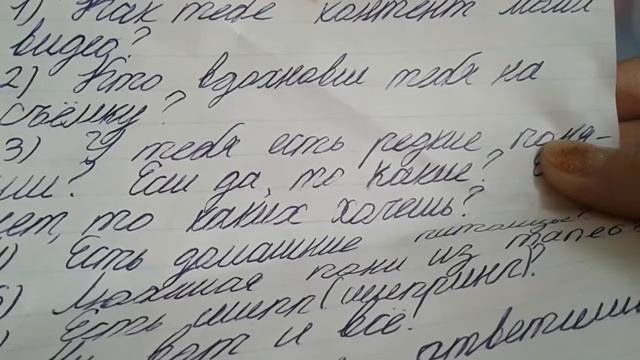 1) Как тебе контент моих
видео?
2) Кто вдохновил тебя на
съёмку?
3) У тебя есть редкие пони-
Если да, то какие?
то каких хочешь?
Есть домашние питомцы?
Любимая пони из
Есть шипп (шипперинг)?
вот и всё.